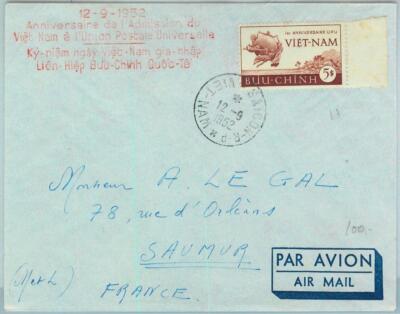 12-9-1952
Anniversaire de l'Admission du
Việt Nam à l'Union Postale Universelle
Kỷ-niệm ngày Việt-Nam gia-nhập
Liên-Hiệp Bưu-Chính Quốc-Tế
1er ANNIVERSAIRE U.P.U.
VIỆT-NAM
BƯU-CHÍNH 5$
SAIGON-R-P * VIET-NAM *
12-9
1952
Monsieur A. LE GAL
78, rue d'Orléans
SAUMUR
FRANCE
100,-
PAR AVION
AIR MAIL